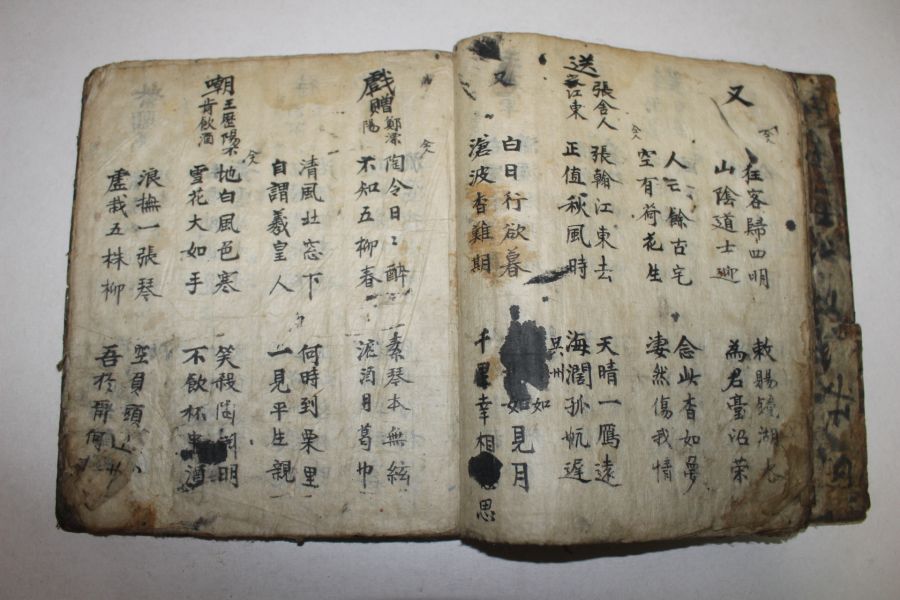 又
狂客歸四明 敕賜鏡湖水
山陰道士迎 為君臺沼榮
人亡餘古宅 念此杳如夢
空有荷花生 凄然傷我情
送張舍人之江東
張翰江東去 天晴一鴈遠
正值秋風時 海濶孤帆遲
吳州
白日行欲暮 如見月
如
又
滄波杳難期 千里幸相思
戲贈鄭溧陽
陶令日〻醉 素琴本無絃
不知五柳春 漉酒用葛巾
清風北窓下 何時到栗里
自謂羲皇人 一見平生親
嘲王歷陽不肯飲酒
地白風色寒 笑殺陶淵明
雪花大如手 不飲杯中酒
浪撫一張琴 空負頭上
虛栽五株柳 吾於爾何